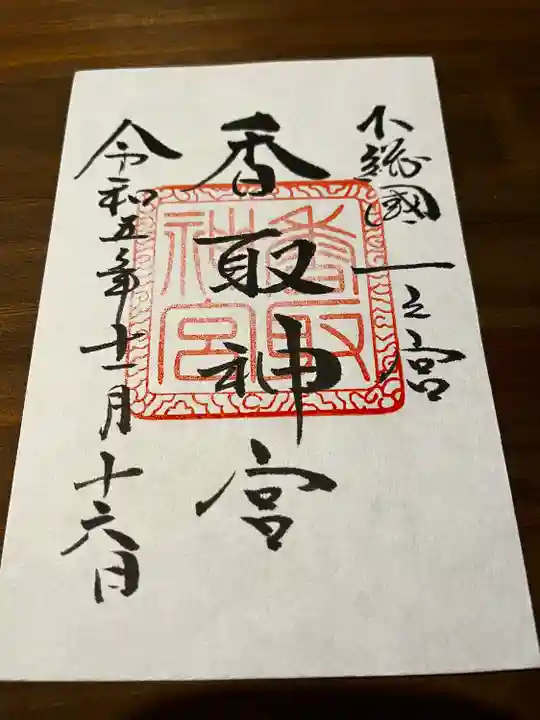 下総國一之宮
香取神宮
令和五年十一月十六日
香取神宮